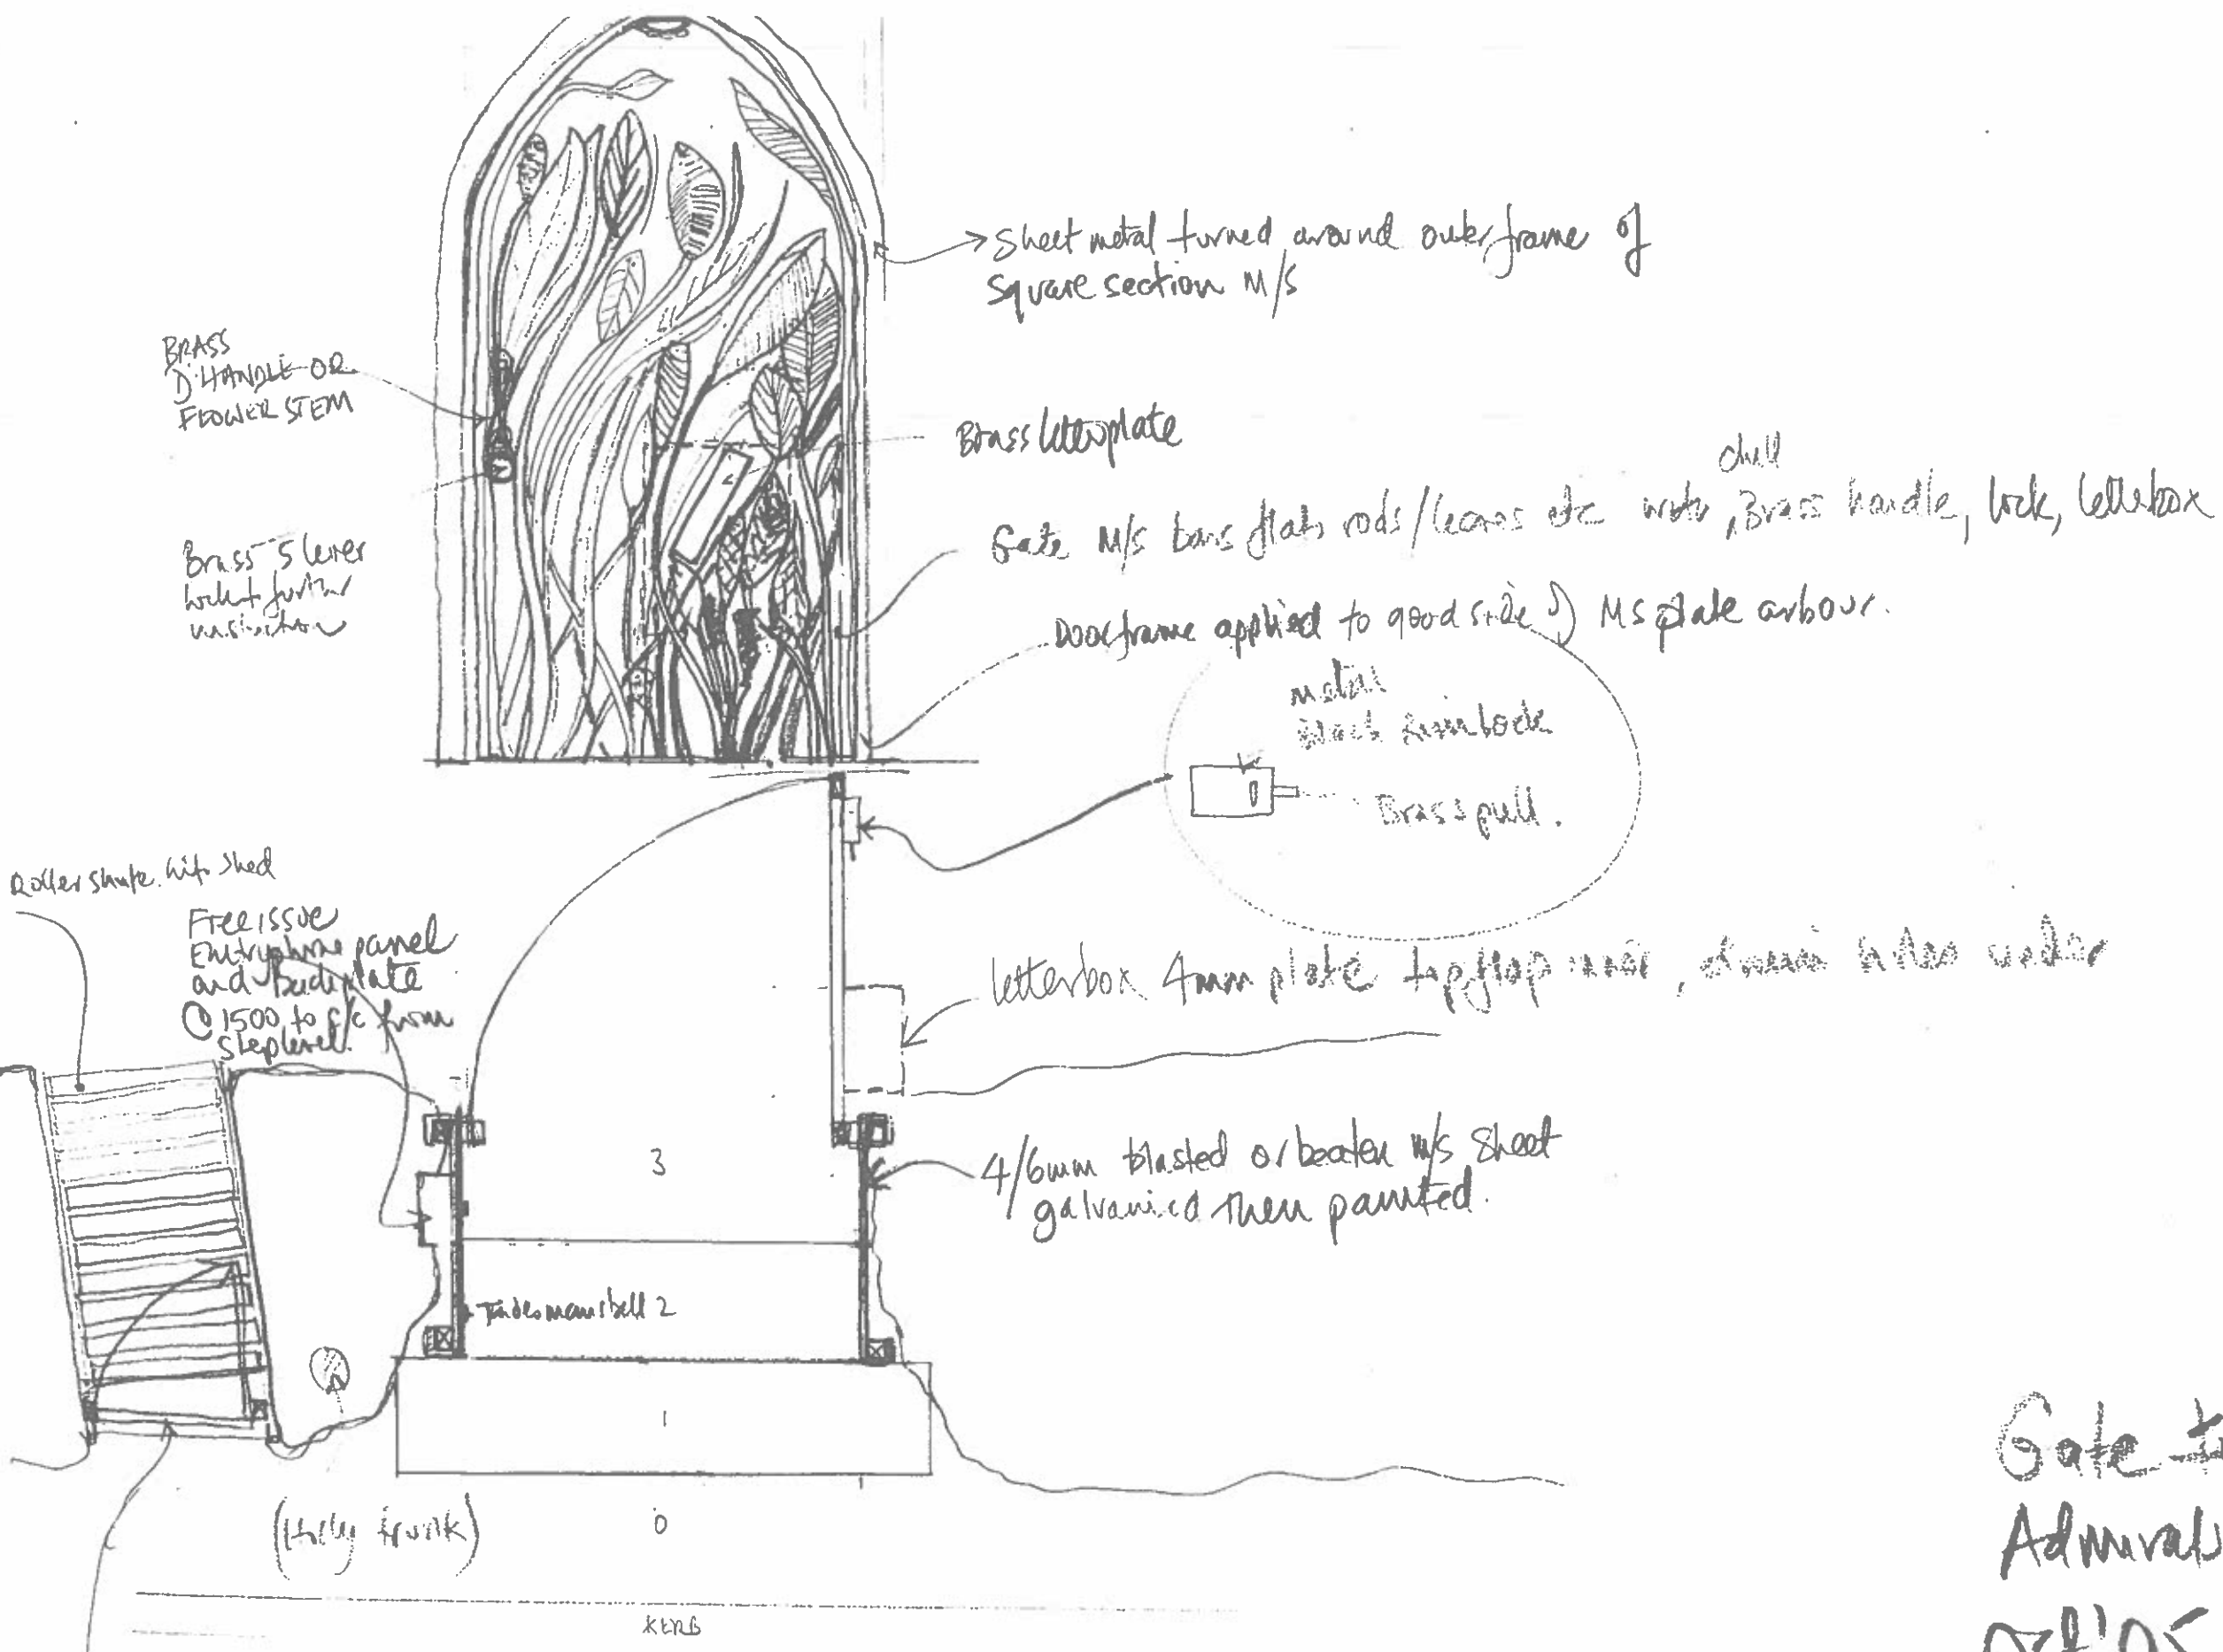 Sheet metal turned around outer frame of
Square section M/S
BRASS
D'HANDLE OR
FLOWER STEM
Brass letterplate
Gate M/S bars flats rods/leaves etc with Brass handle, lock, letterbox
Brass 5 lever
Door frame applied to good side of MS plate arbour.
metal
Black Rimlock
Brass pull.
Roller
shed
Free issue
Entryphone panel
and Backplate
@ 1500 to c/c from
step level.
letterbox 4mm plate top flap
under
3
4/6mm blasted or beaten m/s sheet
galvanised then painted.
Tradesmans bell 2
1
(Holly trunk)
0
KERB
Gate
Admirals